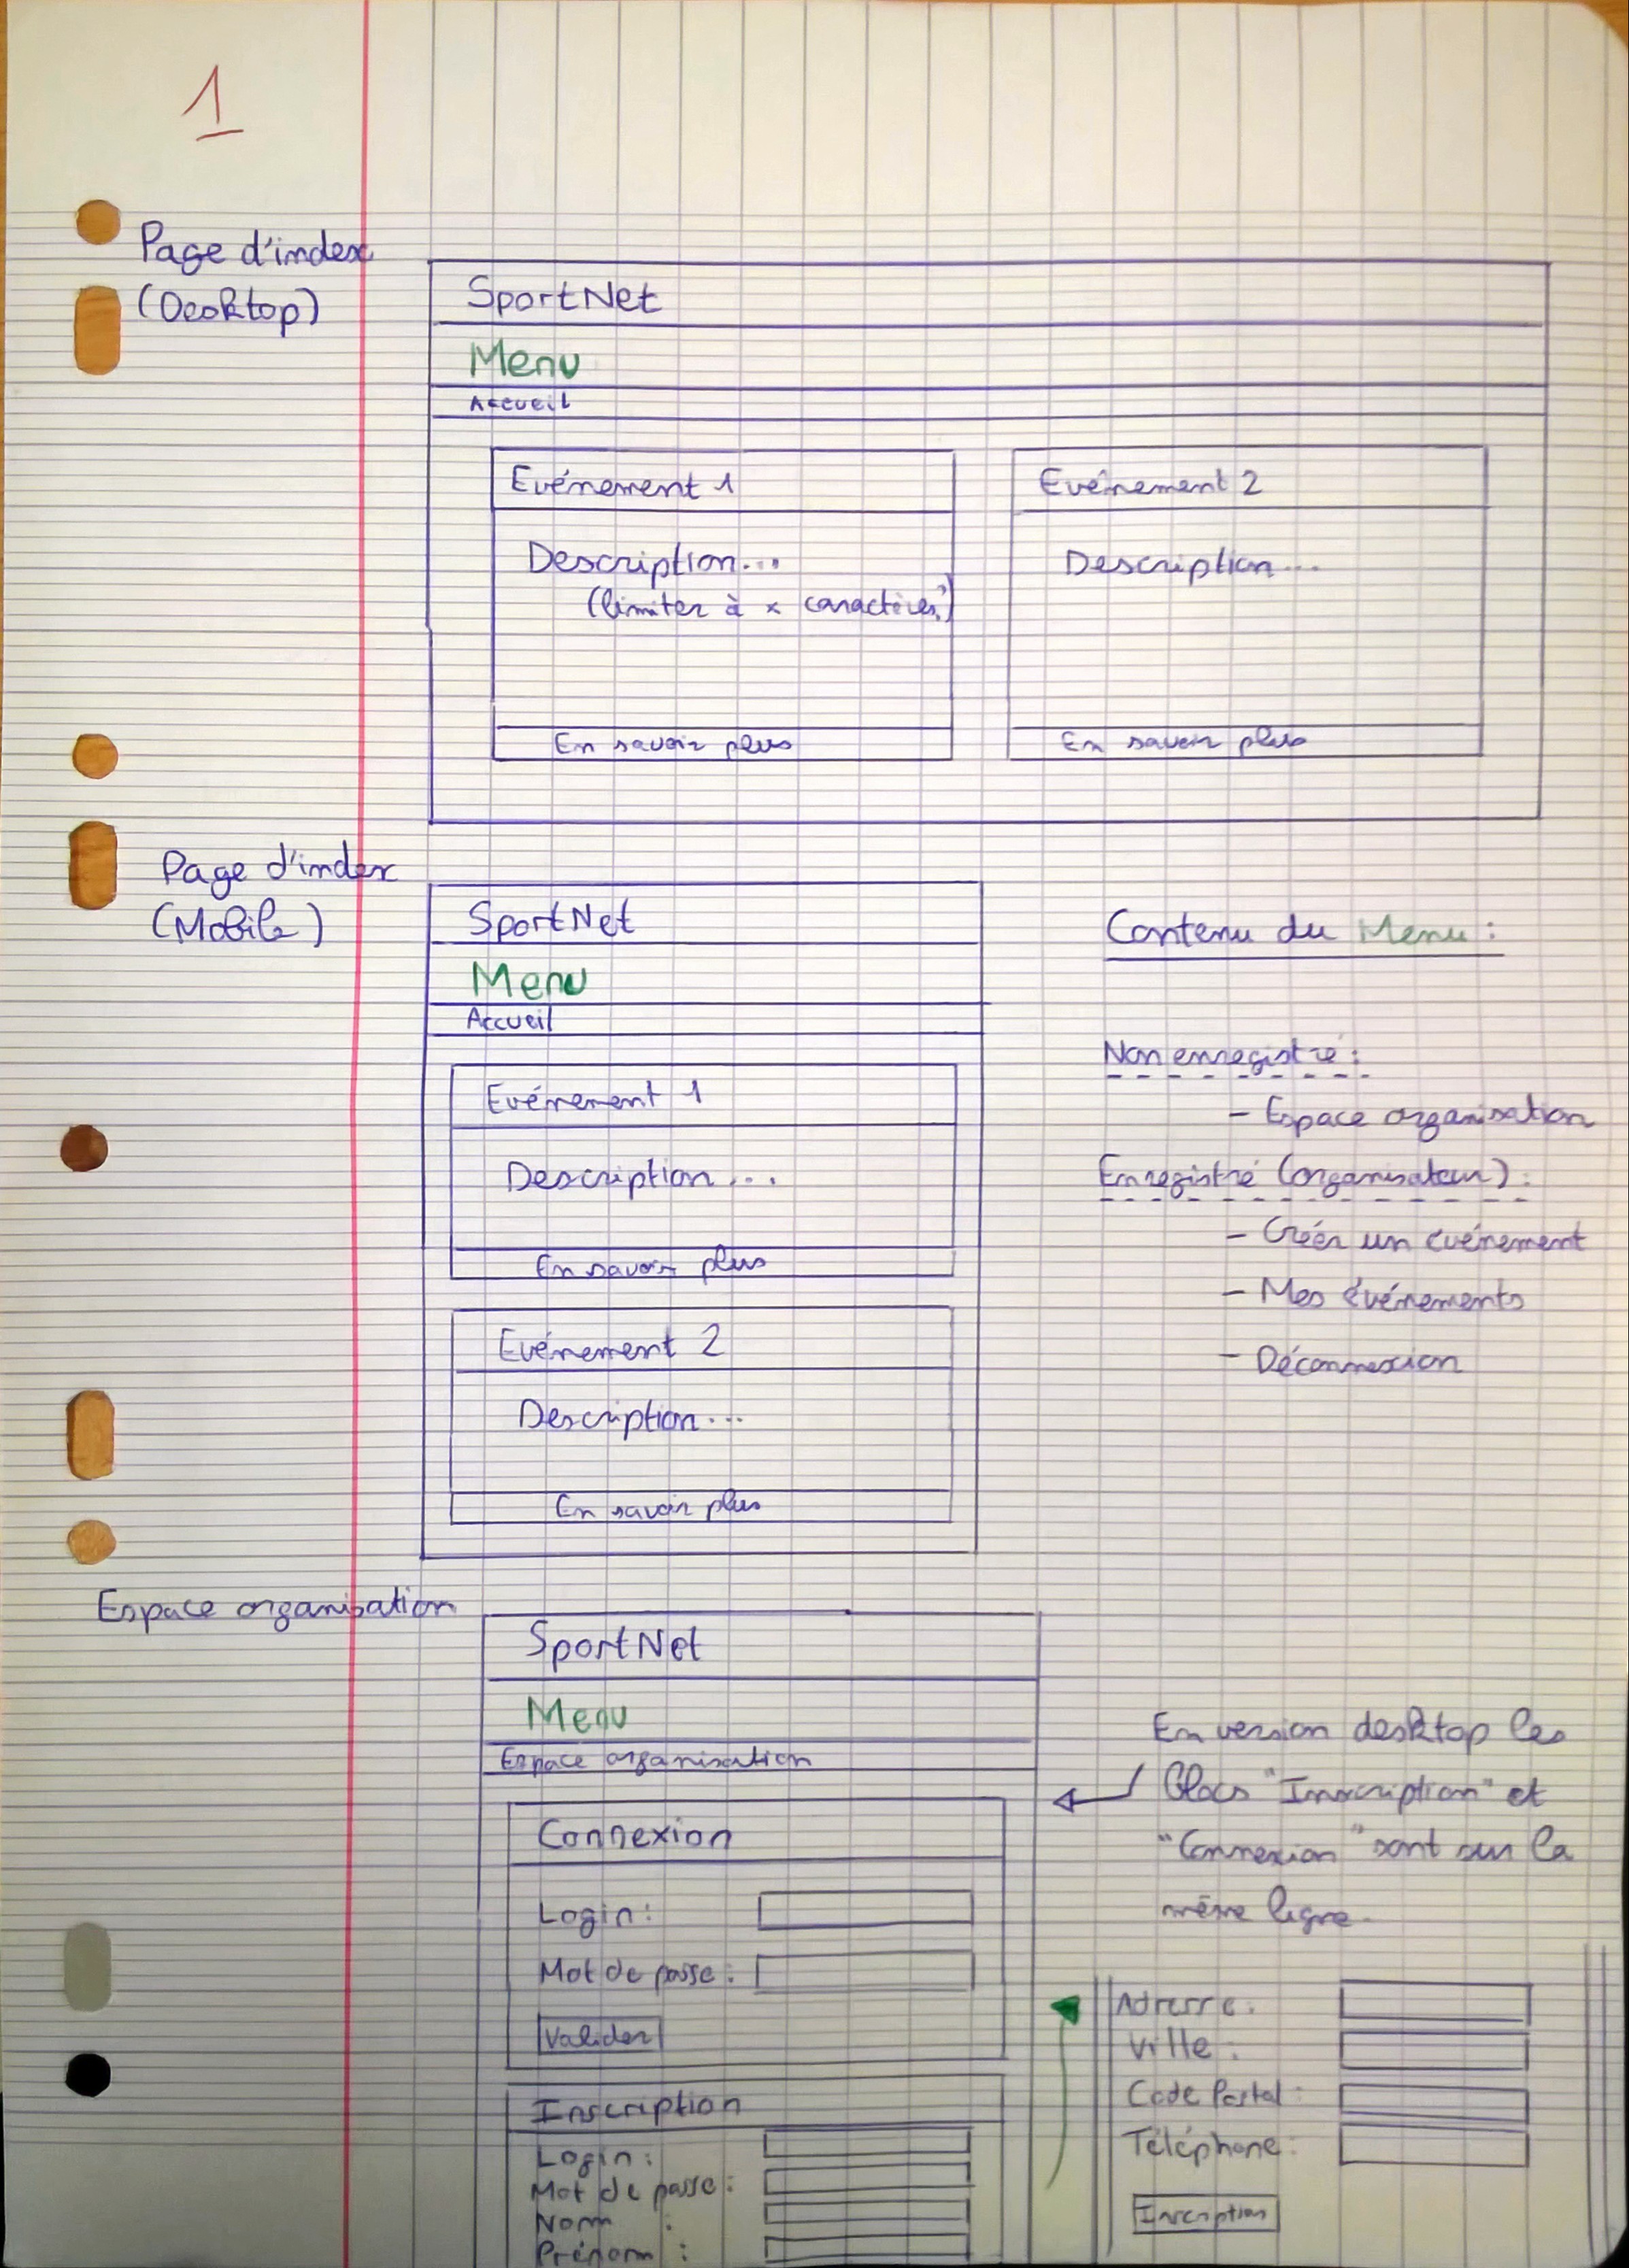 1
Page d'index
(Desktop)
SportNet
Menu
Accueil
Evénement 1
Description...
(limiter à x caractères?)
En savoir plus
Evénement 2
Description...
En savoir plus
Page d'index
(Mobile)
SportNet
Menu
Accueil
Evénement 1
Description...
En savoir plus
Evénement 2
Description...
En savoir plus
Contenu du Menu :
Non enregistré :
- Espace organisation
Enregistré (organisateur) :
- Créer un événement
- Mes événements
- Déconnexion
Espace organisation
SportNet
Menu
Espace organisation
Connexion
Login :
Mot de passe :
Valider
Inscription
Login :
Mot de passe :
Nom :
Prénom :
En version desktop les
blocs "Inscription" et
"Connexion" sont sur la
même ligne.
Adresse :
Ville :
Code Postal :
Téléphone :
Inscription